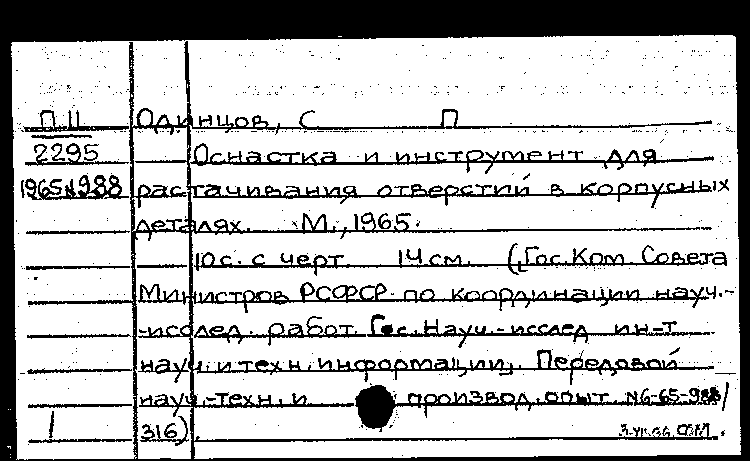 П II Одинцов, С П
2295 Оснастка и инструмент для
1965 N988 растачивания отверстий в корпусных
деталях. М., 1965.
10 с. с черт. 14 см. (Гос. Ком. Совета
Министров РСФСР по координации науч.-
-исслед. работ. Гос. Науч.-исслед ин-т
науч. и техн. информации, Передовой
науч.-техн. и производ. опыт N6-65-988/
316).